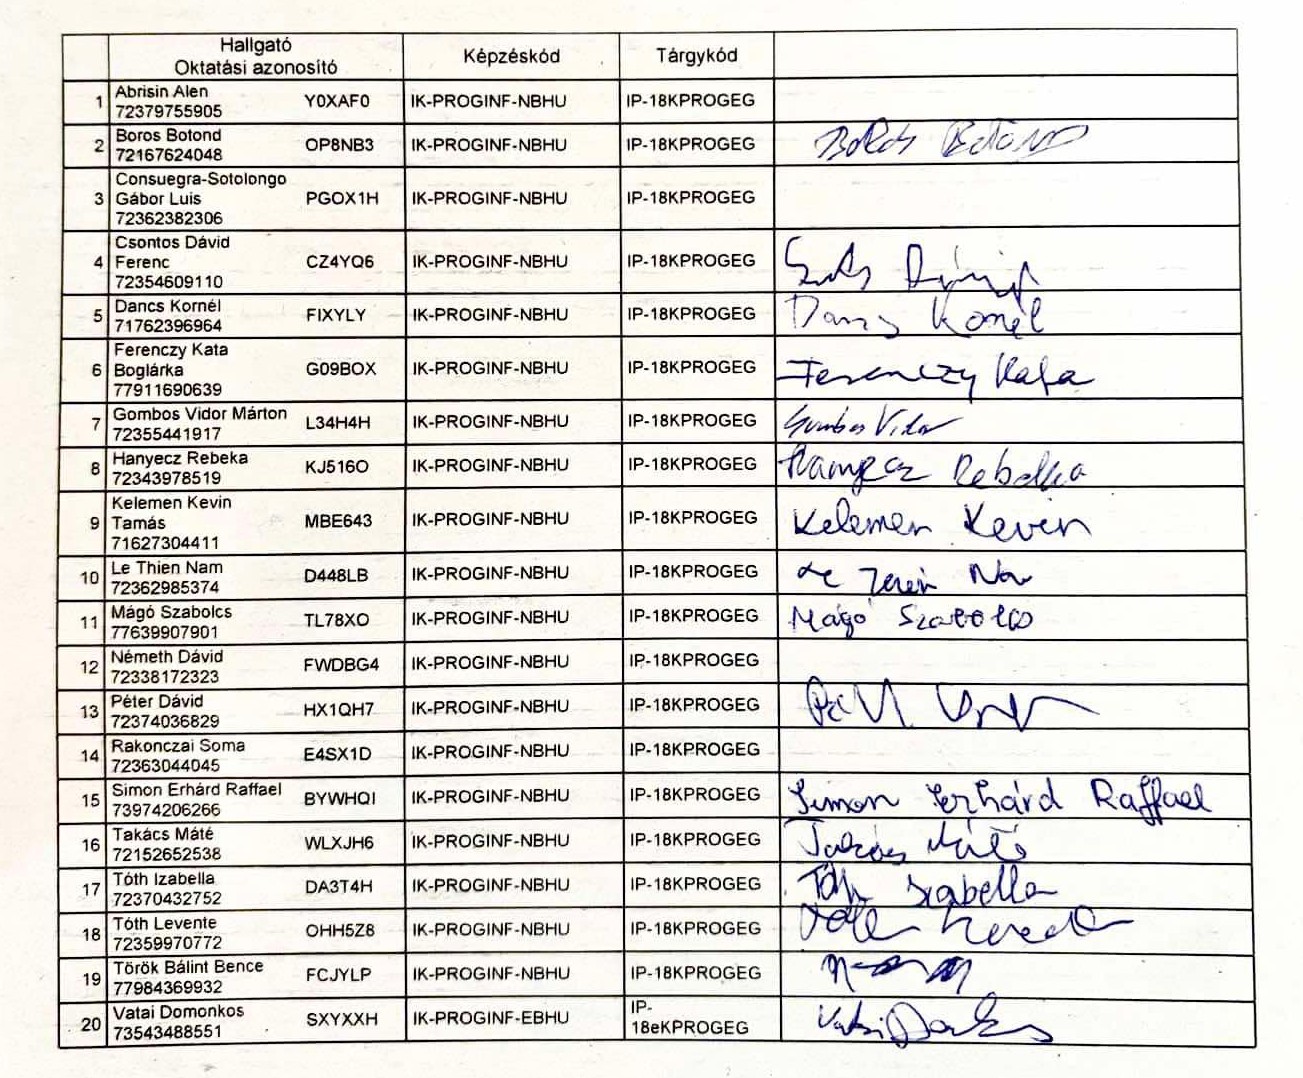 Hallgató
Oktatási azonosító Képzéskód Tárgykód
1 Abrisin Alen
72379755905 Y0XAF0 IK-PROGINF-NBHU IP-18KPROGEG
2 Boros Botond
72167624048 OP8NB3 IK-PROGINF-NBHU IP-18KPROGEG Boros Botond
3 Consuegra-Sotolongo
Gábor Luis
72362382306 PGOX1H IK-PROGINF-NBHU IP-18KPROGEG
4 Csontos Dávid
Ferenc
72354609110 CZ4YQ6 IK-PROGINF-NBHU IP-18KPROGEG
5 Dancs Kornél
71762396964 FIXYLY IK-PROGINF-NBHU IP-18KPROGEG Dancs Kornél
6 Ferenczy Kata
Boglárka
77911690639 G09BOX IK-PROGINF-NBHU IP-18KPROGEG Ferenczy Kata
7 Gombos Vidor Márton
72355441917 L34H4H IK-PROGINF-NBHU IP-18KPROGEG Gombos Vidor
8 Hanyecz Rebeka
72343978519 KJ516O IK-PROGINF-NBHU IP-18KPROGEG Hanyecz Rebeka
9 Kelemen Kevin
Tamás
71627304411 MBE643 IK-PROGINF-NBHU IP-18KPROGEG Kelemen Kevin
10 Le Thien Nam
72362985374 D448LB IK-PROGINF-NBHU IP-18KPROGEG Le Thien Nam
11 Mágó Szabolcs
77639907901 TL78XO IK-PROGINF-NBHU IP-18KPROGEG Mágó Szabolcs
12 Németh Dávid
72338172323 FWDBG4 IK-PROGINF-NBHU IP-18KPROGEG
13 Péter Dávid
72374036829 HX1QH7 IK-PROGINF-NBHU IP-18KPROGEG
14 Rakonczai Soma
72363044045 E4SX1D IK-PROGINF-NBHU IP-18KPROGEG
15 Simon Erhárd Raffael
73974206266 BYWHQI IK-PROGINF-NBHU IP-18KPROGEG Simon Erhárd Raffael
16 Takács Máté
72152652538 WLXJH6 IK-PROGINF-NBHU IP-18KPROGEG Takács Máté
17 Tóth Izabella
72370432752 DA3T4H IK-PROGINF-NBHU IP-18KPROGEG Tóth Izabella
18 Tóth Levente
72359970772 OHH5Z8 IK-PROGINF-NBHU IP-18KPROGEG Tóth Levente
19 Török Bálint Bence
77984369932 FCJYLP IK-PROGINF-NBHU IP-18KPROGEG
20 Vatai Domonkos
73543488551 SXYXXH IK-PROGINF-EBHU IP-
18eKPROGEG Vatai Domonkos